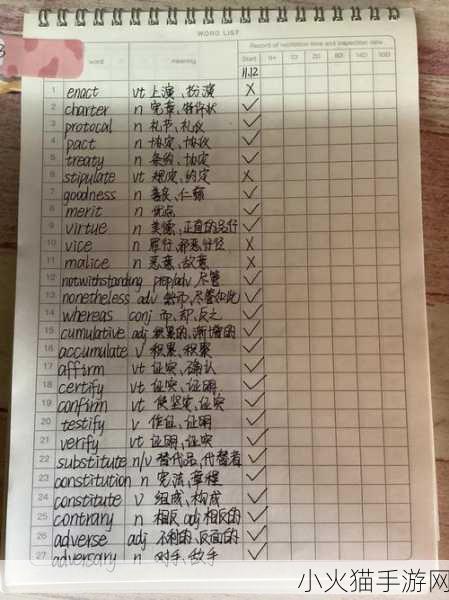 WORD LIST
word meaning Record of recitation time and inspection date
Start
11.12
1 enact vt 上演、扮演 X
2 charter n 宪章、特许状 ✓
3 protocal n 礼节、礼仪 ✓
4 pact n 协定、协议 ✓
5 treaty n 条约、协定 ✓
6 stipulate vt 规定、约定 X
7 goodness n 善良、仁慈 ✓
8 merit n 优点 ✓
9 virtue n 美德、正直的品行 ✓
10 vice n 罪行、邪恶行径 X
11 malice n 恶意、故意 X
12 notwithstanding prep/adv 尽管 ✓
13 nonetheless adv 然而、尽管如此 ✓
14 whereas conj 而、却、反之 ✓
15 cumulative adj 积累的、渐增的 ✓
16 accumulate v 积累、积聚 ✓
17 affirm vt 证实、确认 ✓
18 certify vt 证实、证明 ✓
19 confirm vt 使坚定、证实 ✓
20 testify v 作证、证明 ✓
21 verify vt 证明、证实 ✓
22 substitute n/v 替代品、代替者 ✓
23 constitution n 宪法、章程 ✓
24 constitute v 组成、构成 ✓
25 contrary n 相反 adj 相反的 ✓
26 adverse adj 不利的、反面的 ✓
27 adversary n 对手、敌手 ✓
小火猫手游网